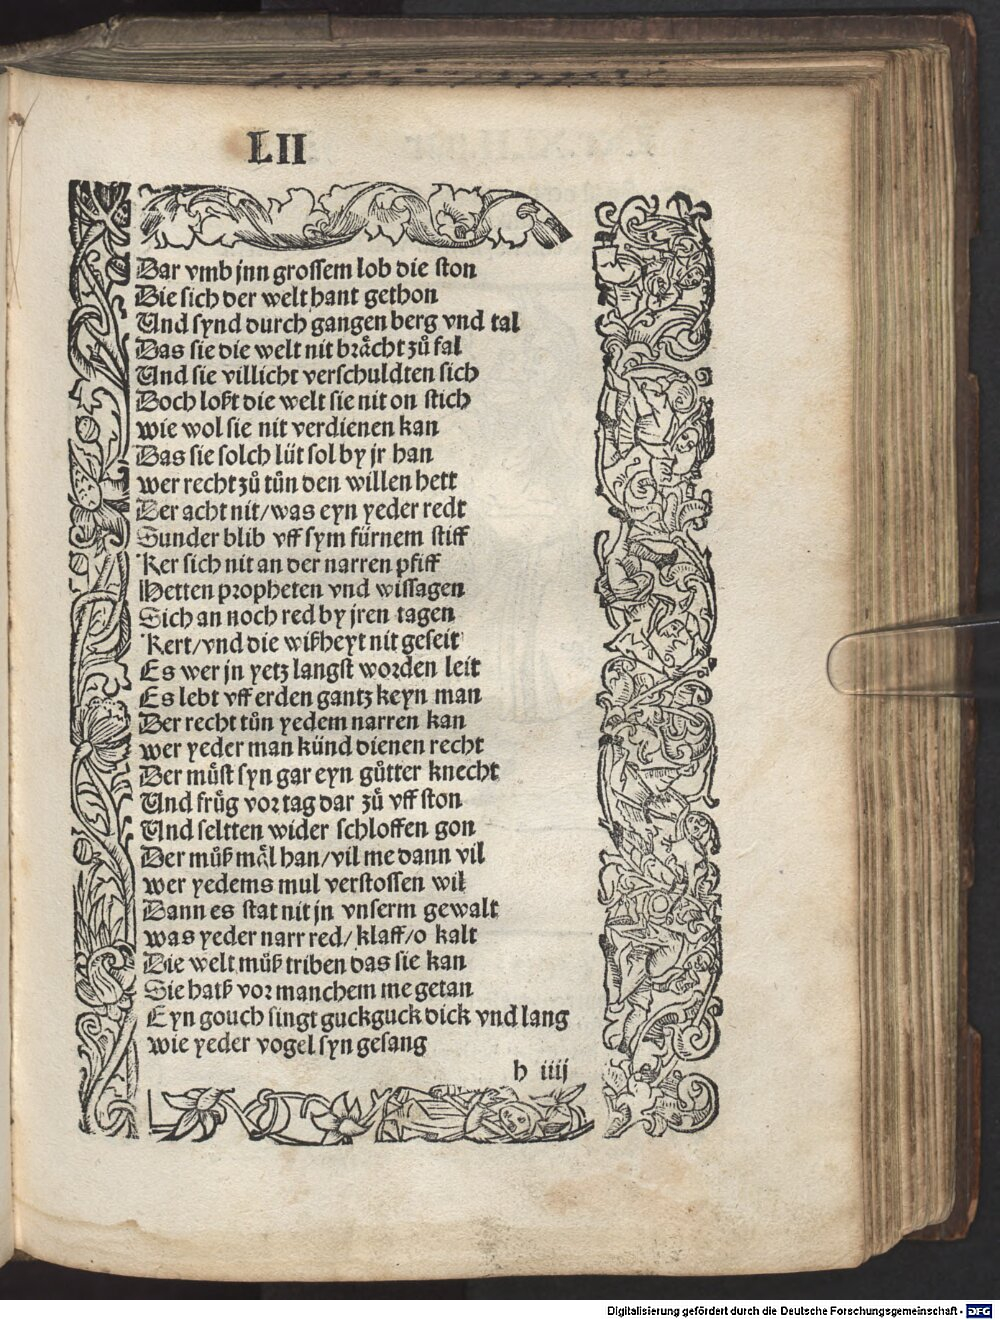 LII
Dar vmb jnn grossem lob die ston
Die sich der welt hant gethon
Und synd durch gangen berg vnd tal
Das sie die welt nit brächt zuͦ fal
Und sie villicht verschuldten sich
Doch loßt die welt sie nit on stich
wie wol sie nit verdienen kan
Das sie solch lüt sol by jr han
wer recht zuͦ tuͦn den willen hett
Der acht nit/was eyn yeder redt
Sunder blib vff sym fürnem stiff
Ker sich nit an der narren pfiff
Hetten propheten vnd wissagen
Sich an noch red by jren tagen
Kert/vnd die wißheyt nit geseit
Es wer jn yetz langst worden leit
Es lebt vff erden gantz keyn man
Der recht tuͦn yedem narren kan
wer yeder man künd dienen recht
Der muͤst syn gar eyn guͦtter knecht
Und fruͤg vor tag dar zuͦ vff ston
Und seltten wider schloffen gon
Der muͦß mäl han/vil me dann vil
wer yedems mul verstossen wil
Dann es stat nit jn vnserm gewalt
was yeder narr red/klaff/o kalt
Die welt muͦß triben das sie kan
Sie hatß vor manchem me getan
Eyn gouch singt guckguck dick vnd lang
wie yeder vogel syn gesang
h iiij
Digitalisierung gefördert durch die Deutsche Forschungsgemeinschaft - DFG